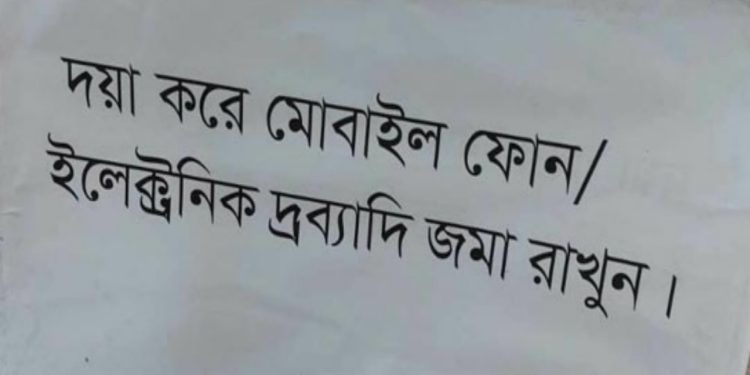 দয়া করে মোবাইল ফোন/
ইলেক্ট্রৌনিক দ্রব্যাদি জমা রাখুন ।